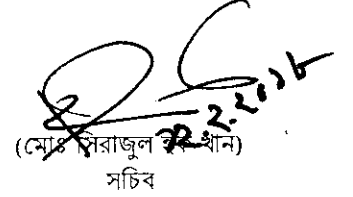 ১২.২.২০১৮
(মোঃ সিরাজুল হক খান)
সচিব